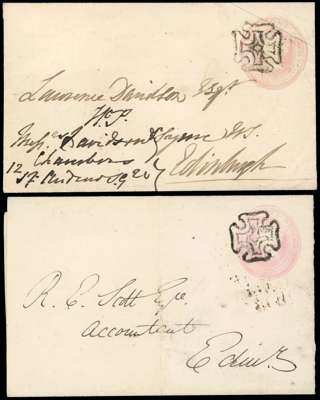 Lawrence Davidson Esqr.
W.S.
Messrs Davidson & Syme W.S.
Chambers
12 St. Andrew Sq.
Edinburgh
R. E. Scott Esqe
Accountant
Edinr.